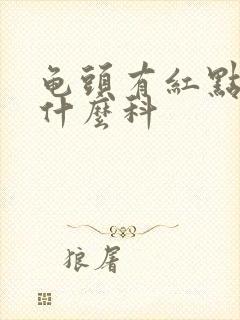 龟頭有紅點
什麼科
狼屠